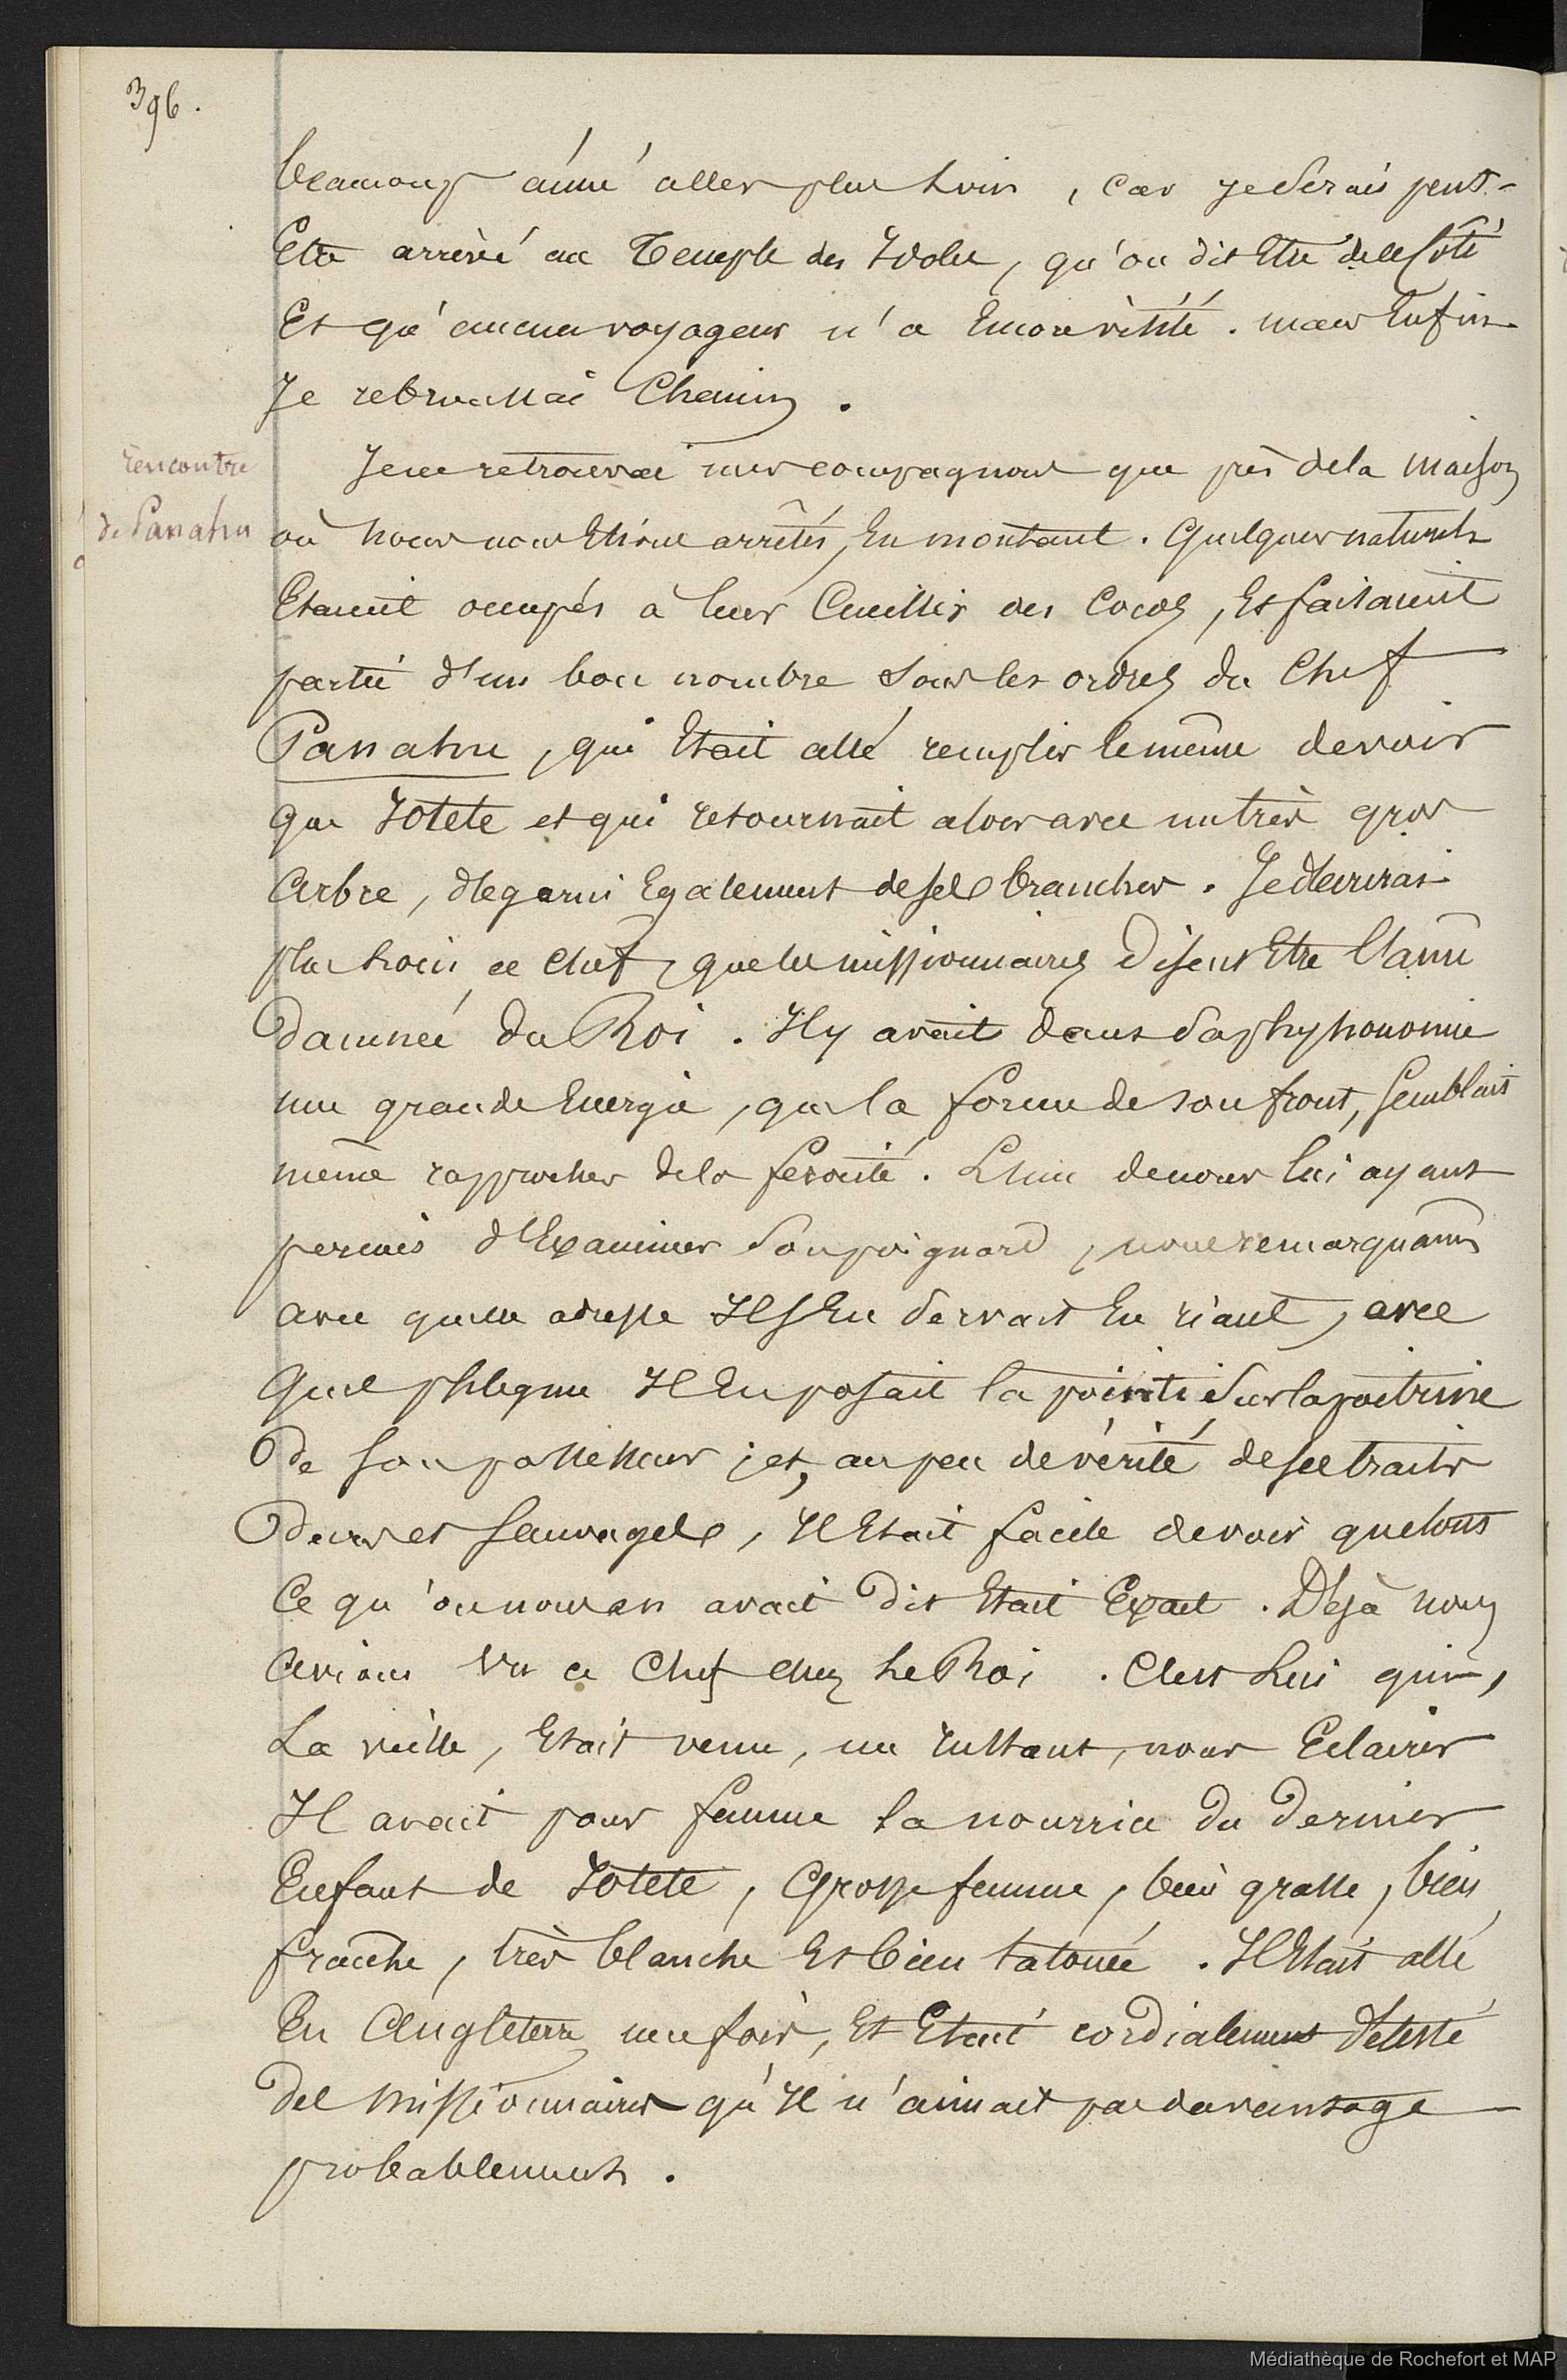 396.
beaucoup aimé aller plus loin, car je serais peut-
Etre arrivé au Temple des Idoles, qu'on dit Etre de ce côté
Et qu'aucun voyageur n'a Encore visité. mais Enfin
Je rebroussai Chemin.
rencontre
de Panahu
Je ne retrouvai mes compagnons que près de la maison
où nous nous Etions arrêtés, En montant. Quelques naturels
Etaient occupés à leur Cueillir des Cocos, Et faisaient
partie d'un bon nombre sous les ordres du Chef
Panahu, qui Etait allé remplir le même devoir
que Iotete et qui retournait alors avec un très gros
Arbre, dégarni Egalement de ses branches. Je décrirai
plus loin ce Chef, que les missionnaires disent Etre l'âme
damnée du Roi. Il y avait dans sa physionomie
une grande Energie, que la forme de son front, semblait
même rapprocher de la férocité. L'un de nous lui ayant
permis d'Examiner son poignard, nous remarquâmes
avec quelle adresse Il s'En servait En riant, avec
quel phlegme Il En posait la pointe sur la poitrine
de son possesseur; et, au peu de vérité de ses traits
durs et sauvages, Il Etait facile de voir que tout
Ce qu'on nous en avait dit Etait Exact. Déjà nous
Avions vu ce Chef chez le Roi. C'est Lui qui,
La veille, Etait venu, un Instant, nous Eclairer
Il avait pour femme la nourrice du dernier
Enfant de Iotete, Grosse femme, bien grasse, bien
fraîche, très blanche Et bien tatouée. Il Etait allé
En Angleterre une fois, Et Etait cordialement détesté
des missionnaires qu'Il n'aimait pas davantage
probablement.
Médiathèque de Rochefort et MAP